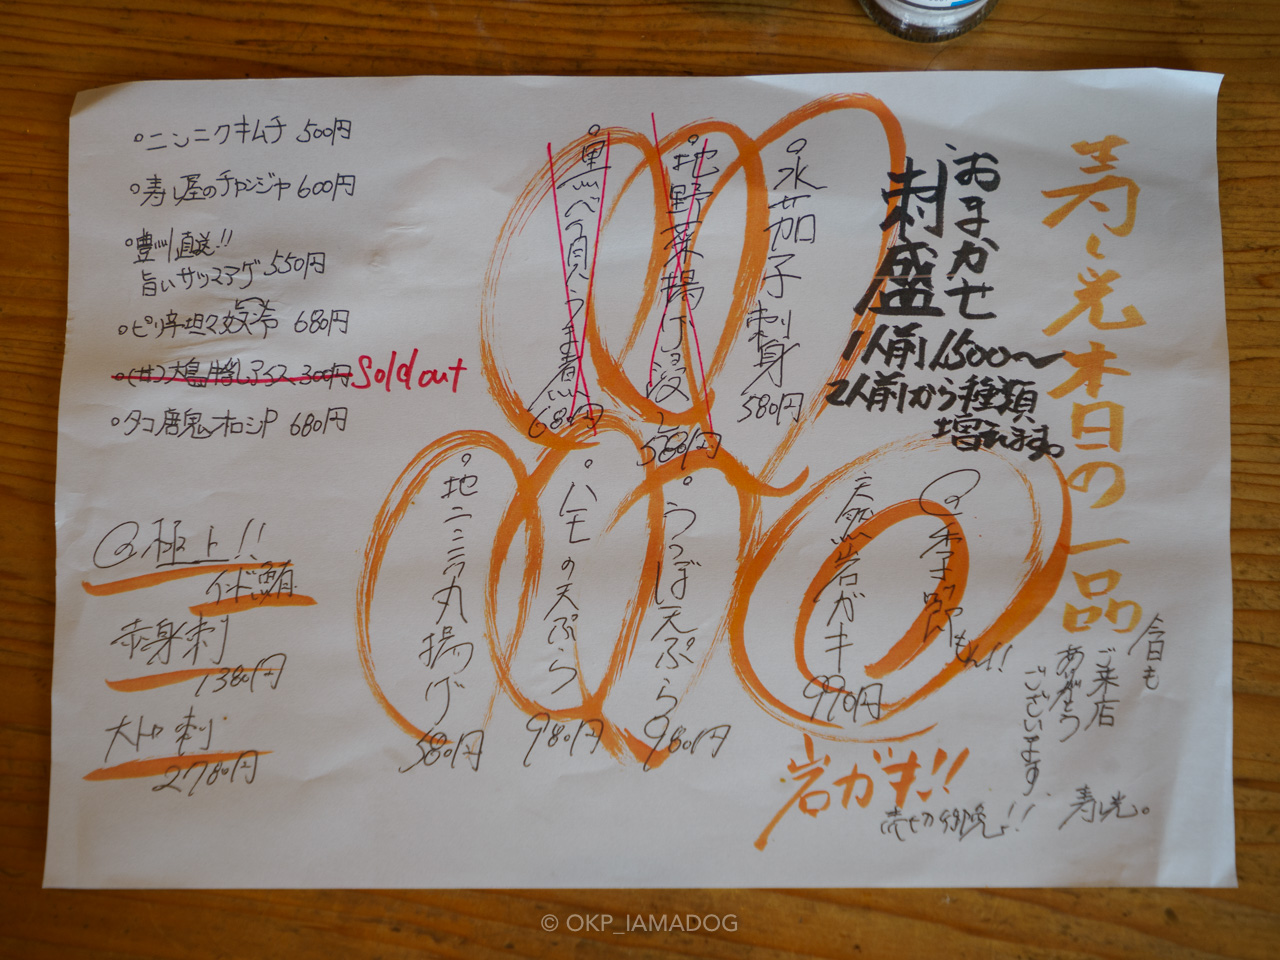 寿し光 本日の一品
おまかせ
刺盛
1人前 1,500〜
2人前から種類
増えます。
水茄子刺身 580円
地野菜揚げ浸し 580円
黒べら貝うま煮 680円
季節もん!!
天然岩ガキ 990円
うつぼ天ぷら 980円
ハモの天ぷら 980円
地ニニラ丸揚げ 580円
岩ガキ!!
売切御免!!
今日も
ご来店
ありがとう
ございます
寿し光。
ニンニクキムチ 500円
寿し屋のチャンジャ 600円
豊川直送!!
旨いサツマアゲ 550円
ピリ辛坦々奴 冷 680円
大島牛乳アイス 300円 Sold out
タコ唐鬼オロシP 680円
極上!!
インド鮪
赤身刺
1380円
大トロ刺
2780円
© OKP_IAMADOG